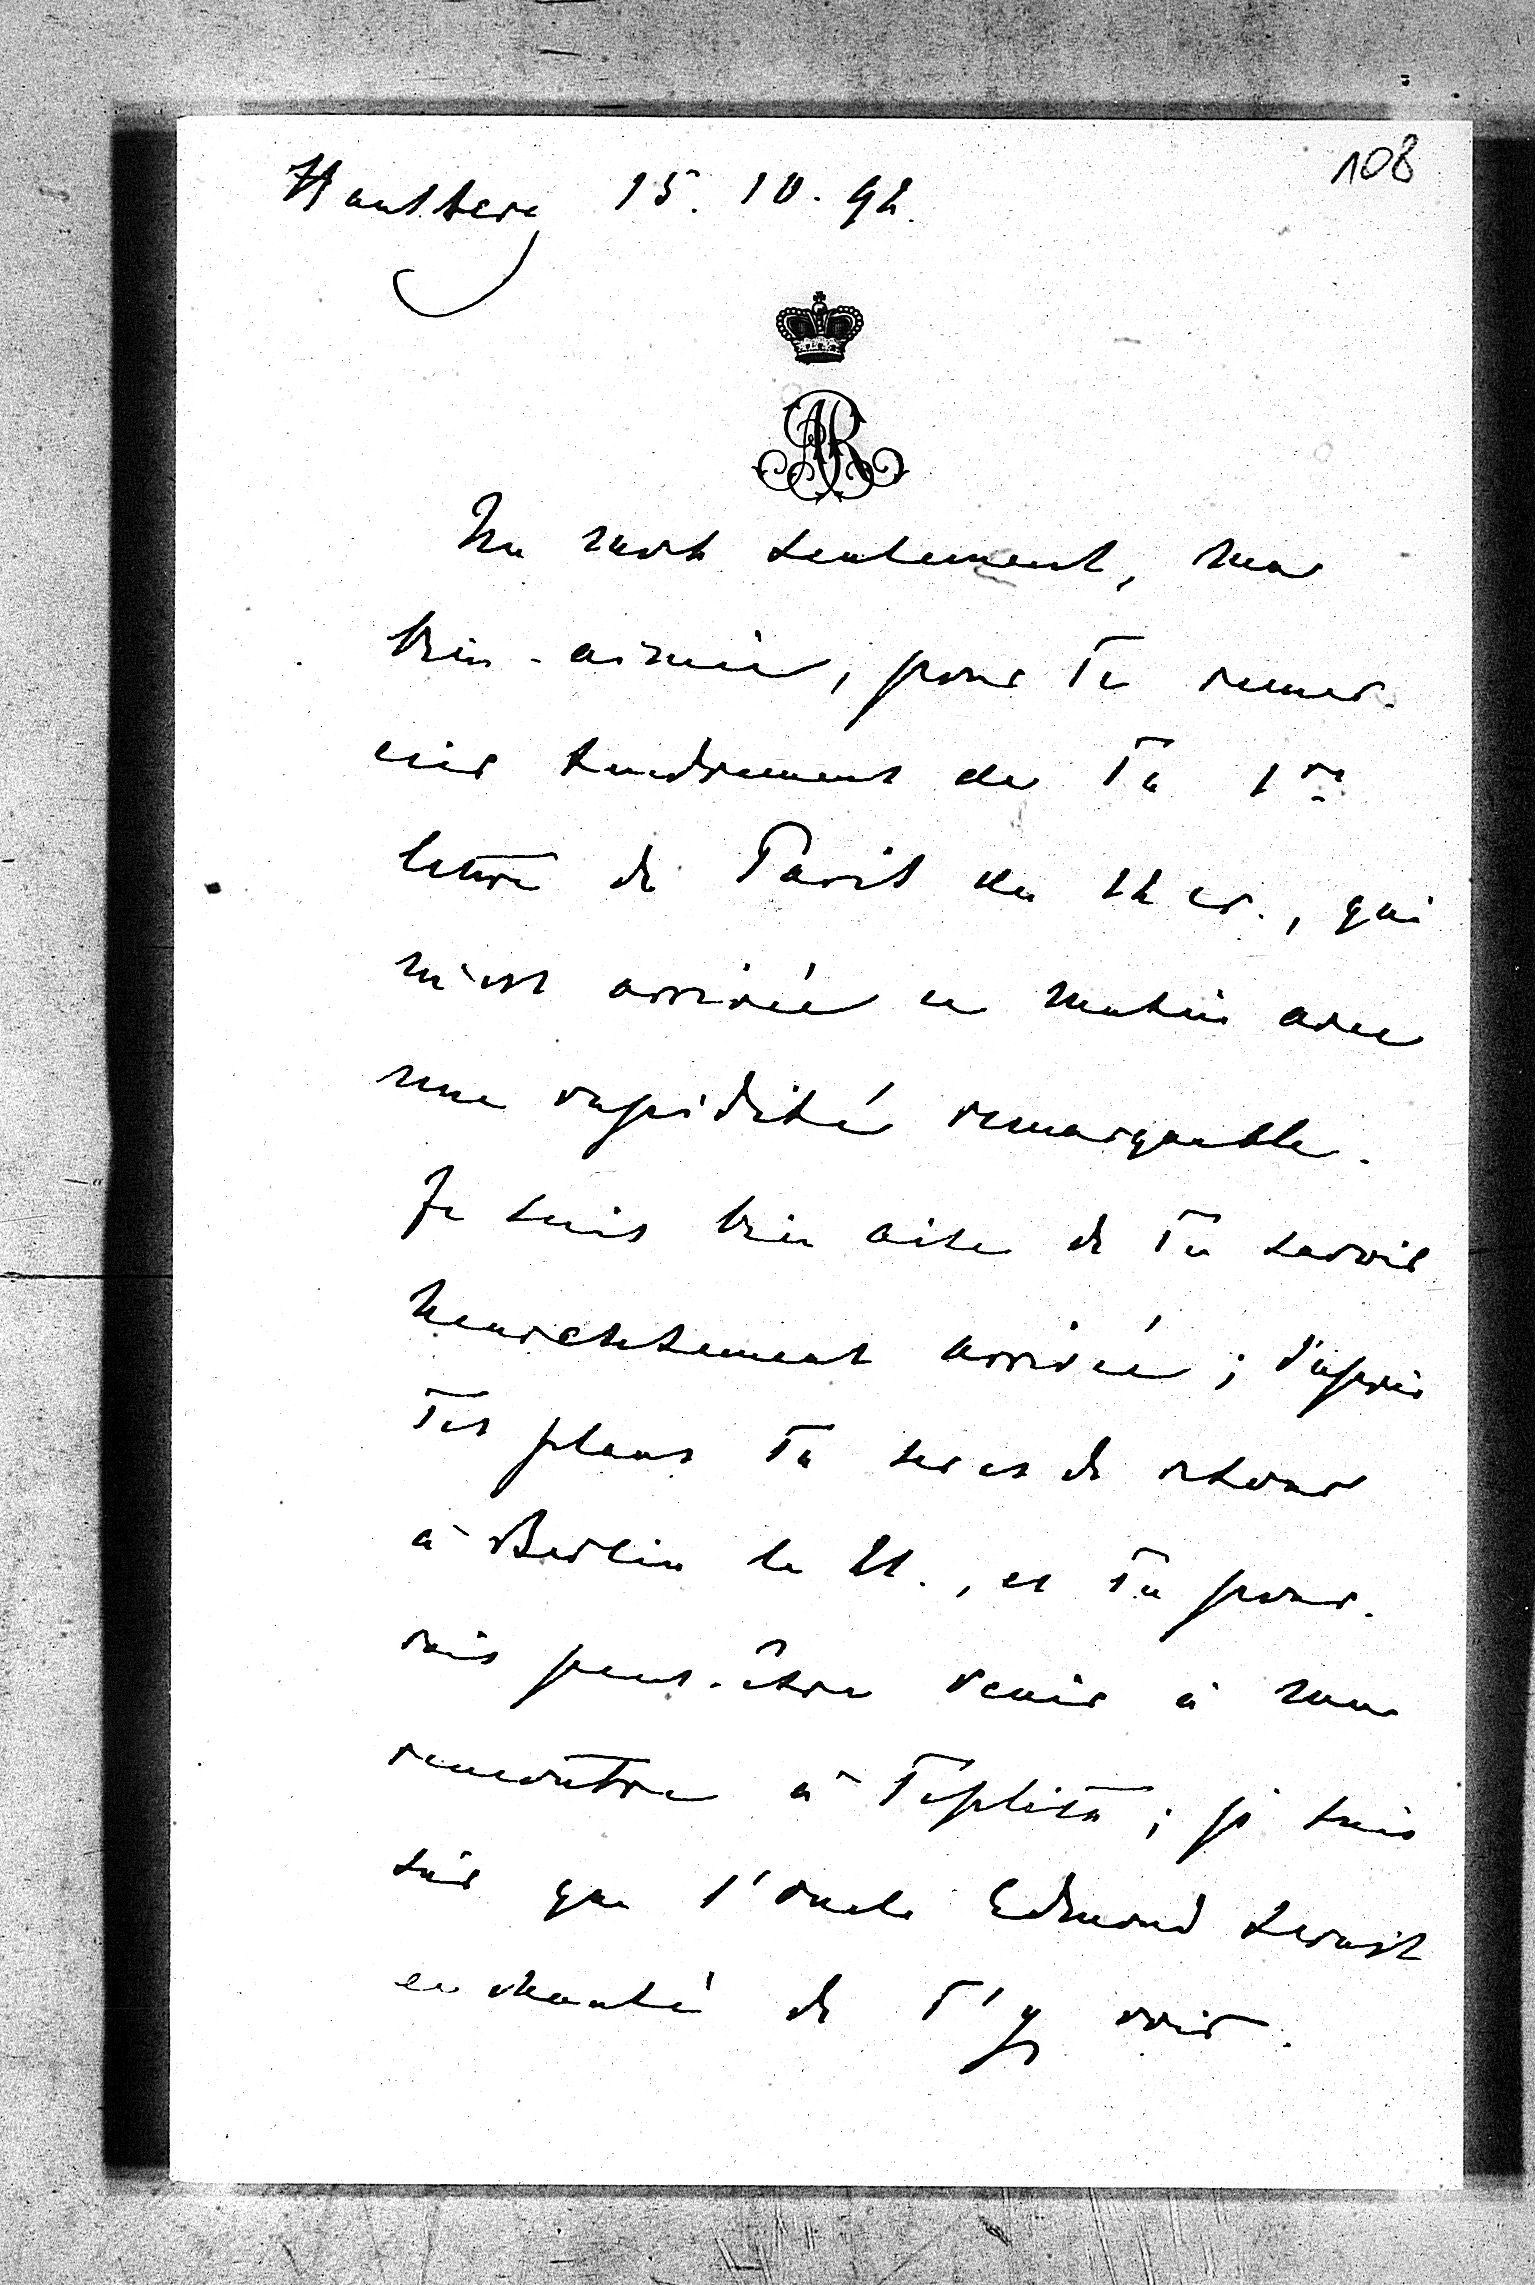 108
15. 10. 92.
AR
Un mot seulement, ma
bien-aimée, pour Te remer-
cier tendrement de Ta 1re
lettre de Paris du 12 cr., qui
m'est arrivée ce matin avec
une rapidité remarquable.
Je suis bien aise de Te savoir
heureusement arrivée; d'après
Tes plans Tu seras de retour
à Berlin le 21., et Tu pour-
rais peut-être venir à ma
rencontre à Teplitz; je suis
sûr que l'oncle Edmond serait
enchanté de T'y voir.